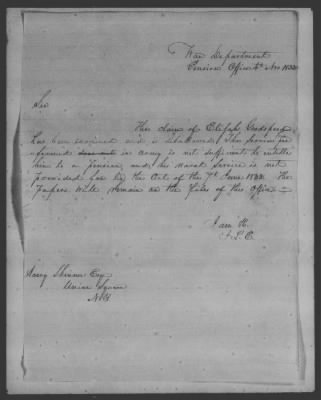 War Department
Pension Office 4th Nov 1833
Sir
The claim of Elijah
has been examined and is disallowed. The service
in army is not sufficient to entitle
him to a pension, and his naval service is not
provided for by the Act of the 7th June 1832. The
Papers will remain on the files of this Office
I am &c.
J. L. E.
Harry Esq
Union Square
N.Y.